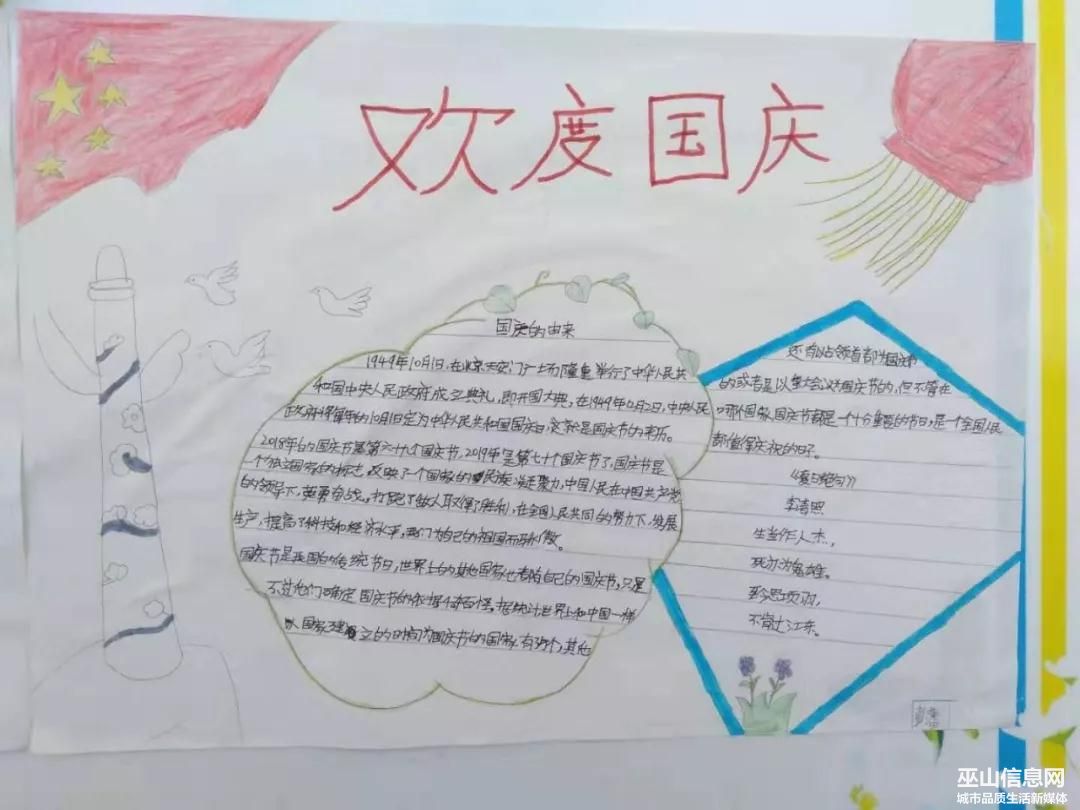 欢度国庆
国庆的由来
1949年10月1日,在北京天安门广场隆重举行了中华人民共
和国中央人民政府成立典礼,即开国大典。在1949年12月2日,中央人民
政府将每年的10月1日定为中华人民共和国国庆日,这就是国庆节的来历。
2018年的国庆节是第六十九个国庆节,2019年是第七十个国庆节了,国庆节是
个独立国家的标志,反映了一个国家的民族凝聚力,中国人民在中国共产党
的领导下,英勇奋战,打跑了敌人取得了胜利,在全国人民共同的努力下,发展
生产,提高了科技和经济水平,我们为自己的祖国而骄傲。
国庆节是我国的传统节日,世界上的其他国家也有自己的国庆节,只是
不过他们确定国庆节的依据千奇百怪。据统计世界上和中国一样
以国家建立的时间为国庆节的国家有35个,其他
还有以占领首都为国庆节
的或者是以集大会议为国庆节的,但不管在
哪个国家,国庆节都是一个十分重要的节日,是一个全国人民
都值得庆祝的日子。
《夏日绝句》
李清照
生当作人杰,
死亦为鬼雄。
至今思项羽,
不肯过江东。
巫山信息网
城市品质生活新媒体